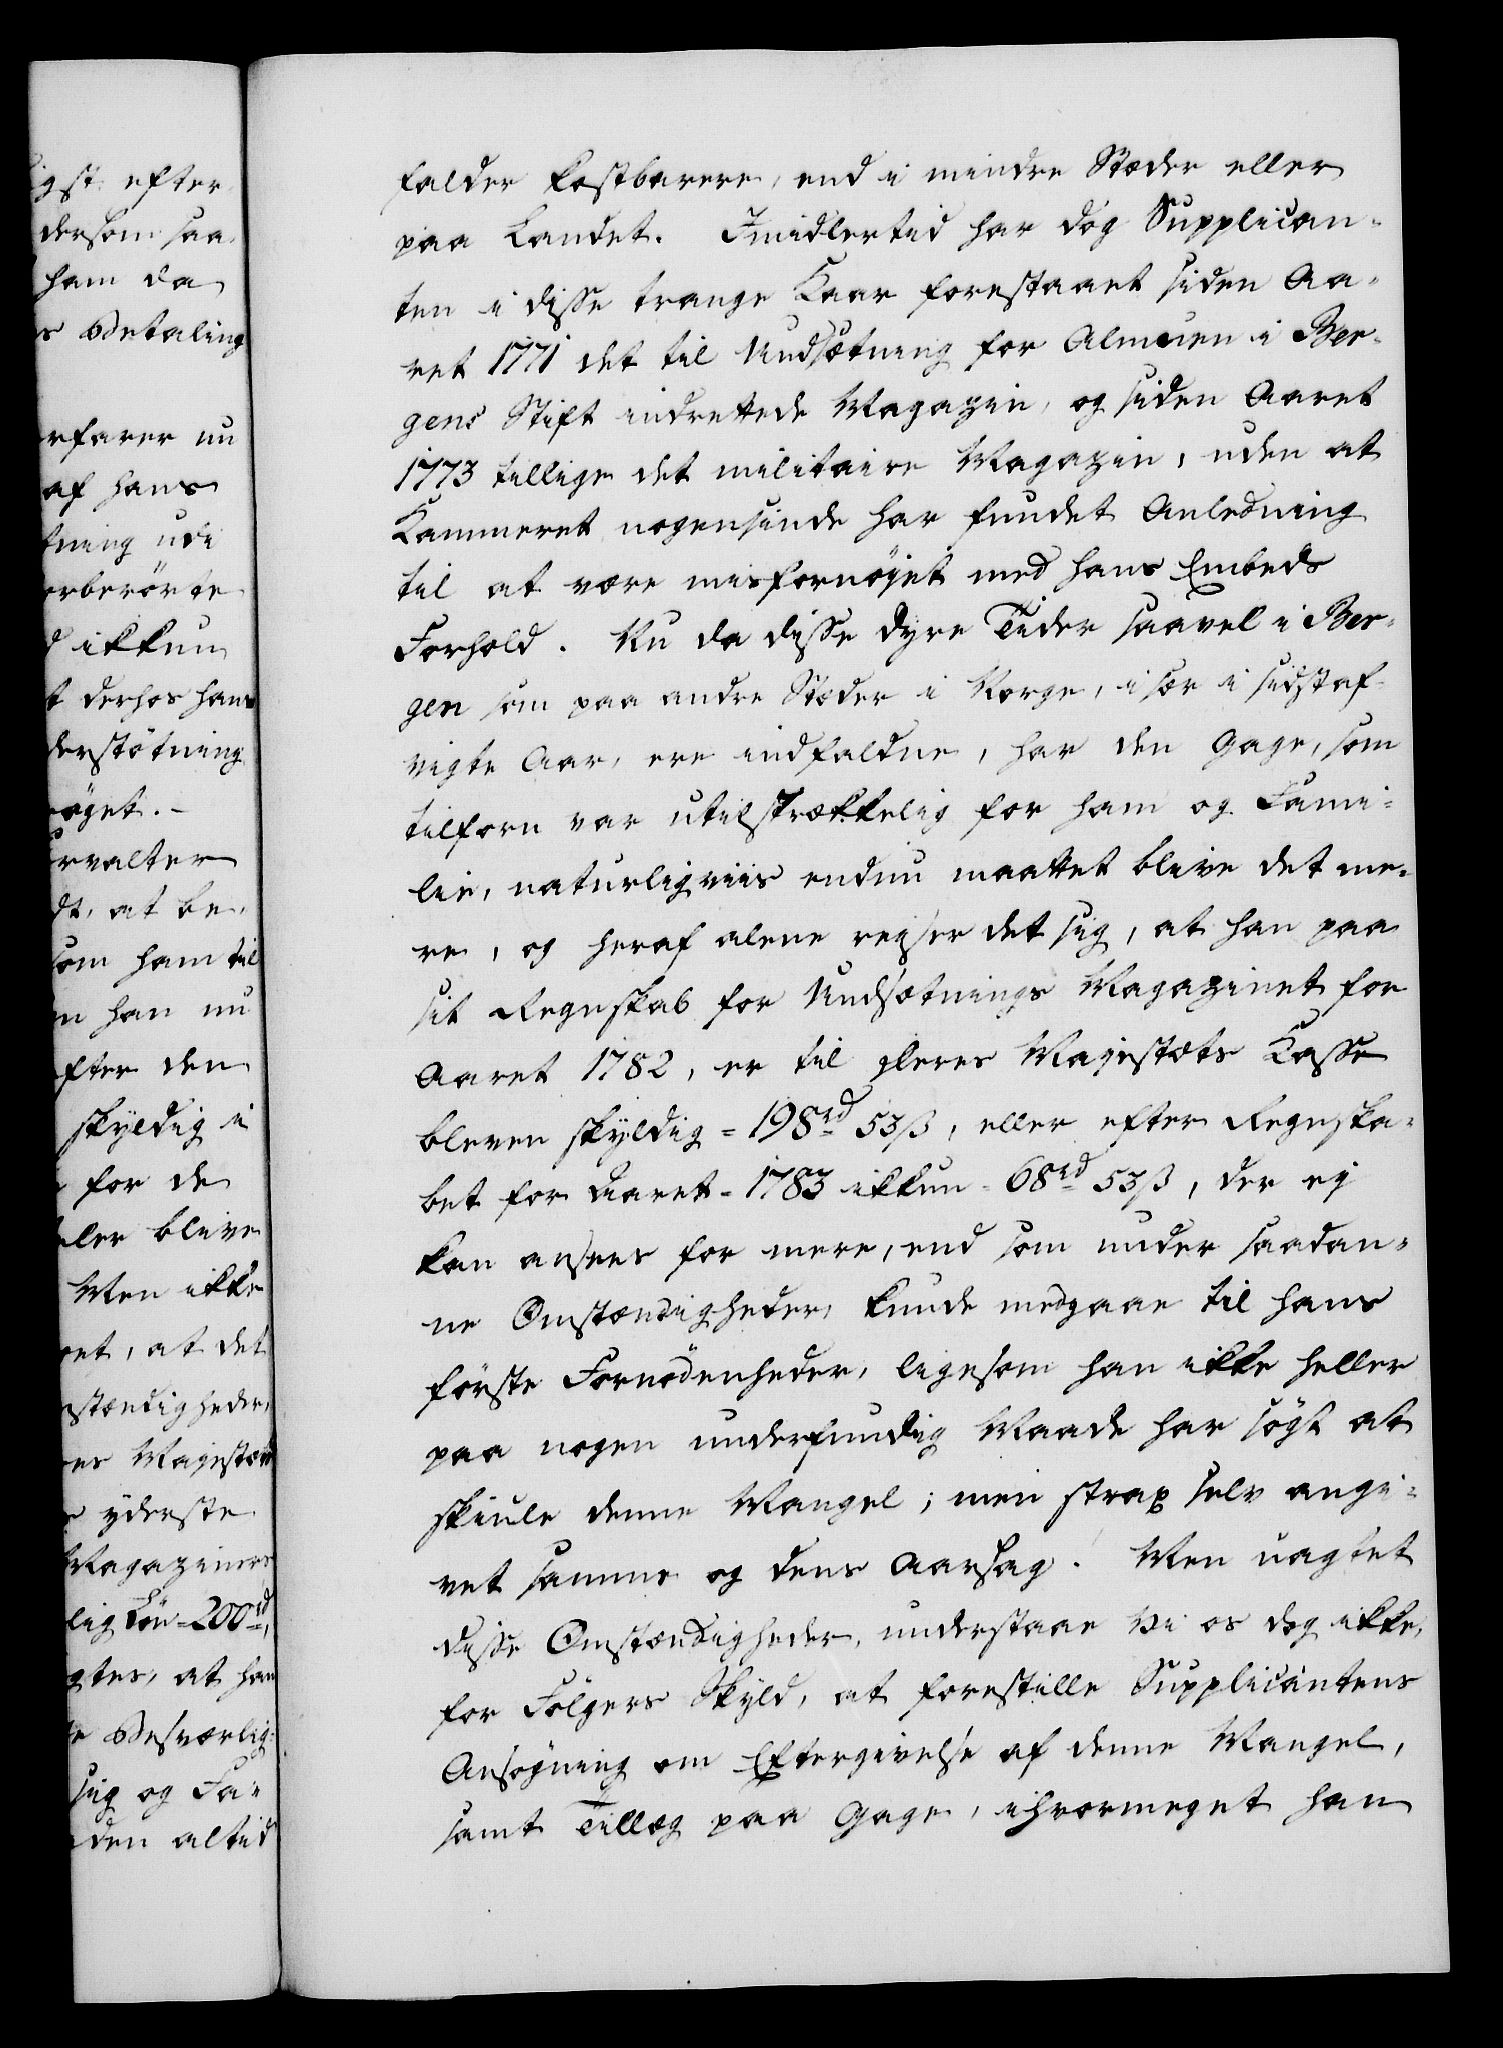 igst efter
dersom saa
ham da
s Betaling
rfarer nu
af hans
tning udi
erberörte
d ikkun
t derhos hans
derstötning
öget.-
rvalter
dt, at be-
som ham til
n han nu
fter den
skyldig i
for de
ler blive
Men ikke
et, at det
stændigheder,
es Majestæt
yderste
Magazinets
lig Lön=200rd,
gtes, at han
e Besværlig-
sig og Fa-
den altid
falder kostbarere, end i mindre Stæder eller
paa Landet. Imidlertid har dog Supplican-
ten i disse trange Kaar forestaaet siden Aa-
ret 1771 det til Undsætning for Almuen i Ber-
gens Stift indrettede Magazin, og siden Aaret
1773 tillige det militaire Magazin, uden at
Kammeret nogensinde har fundet Anledning
til at være misfornöjet med hans Embeds
Forhold. Nu da disse dyre Tider saavel i Ber-
gen som paa andre Stæder i Norge, i sær i sidstaf-
vigte Aar, ere indfaldne, har den Gage, som
tilforn var utilstrækkelig for ham og Fami-
lie, naturligviis endnu maattet blive det me-
re, og heraf alene rejser det sig, at han paa
sit Regnskab for Undsætnings Magazinet for
Aaret 1782, er til Deres Majestæts Kasse
bleven skyldig = 198rd 53ß, eller efter Regnska-
bet for Aaret = 1783 ikkun = 68rd 53ß, der ej
kan ansees for mere, end som under saadan-
ne Omstændigheder, kunde medgaae til hans
förste Fornödenheder, ligesom han ikke heller
paa nogen underfundig Maade har sögt at
skiule denne Mangel; men strax selv angi-
vet samme og dens Aarsag. Men uagtet
disse Omstændigheder, understaae Vi os dog ikke,
for Fölgers Skyld, at forestille Supplicantens
Ansögning om Eftergivelse af denne Mangel,
samt Tillæg paa Gage, ihvormeget han